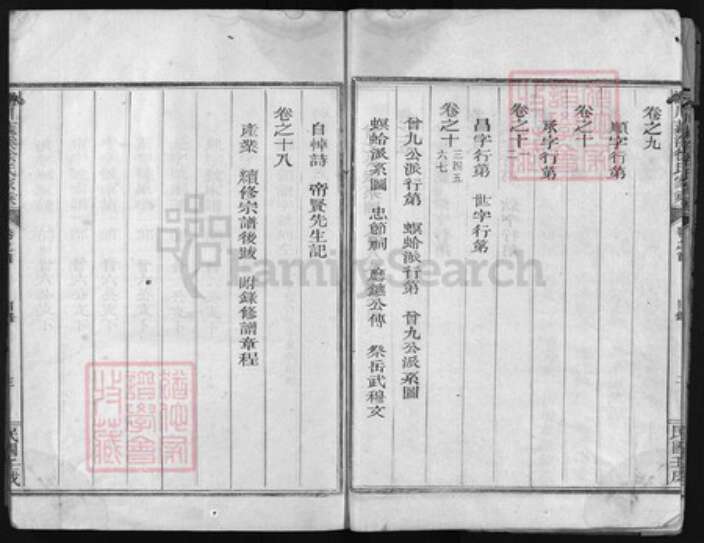 卷之九
順字行第
卷之十
承字行第
卷之十二
昌字行第 世字行第
卷之十三四五六七
曾九公派行第 螟蛤派行第 曾九公派系圖
螟蛤派系圖 忠節祠 公傳 祭岳武穆文
自悼詩 帝賢先生記
卷之十八
產業 續修宗譜後跋 附錄修譜章程
目錄
民國壬戌
FamilySearch